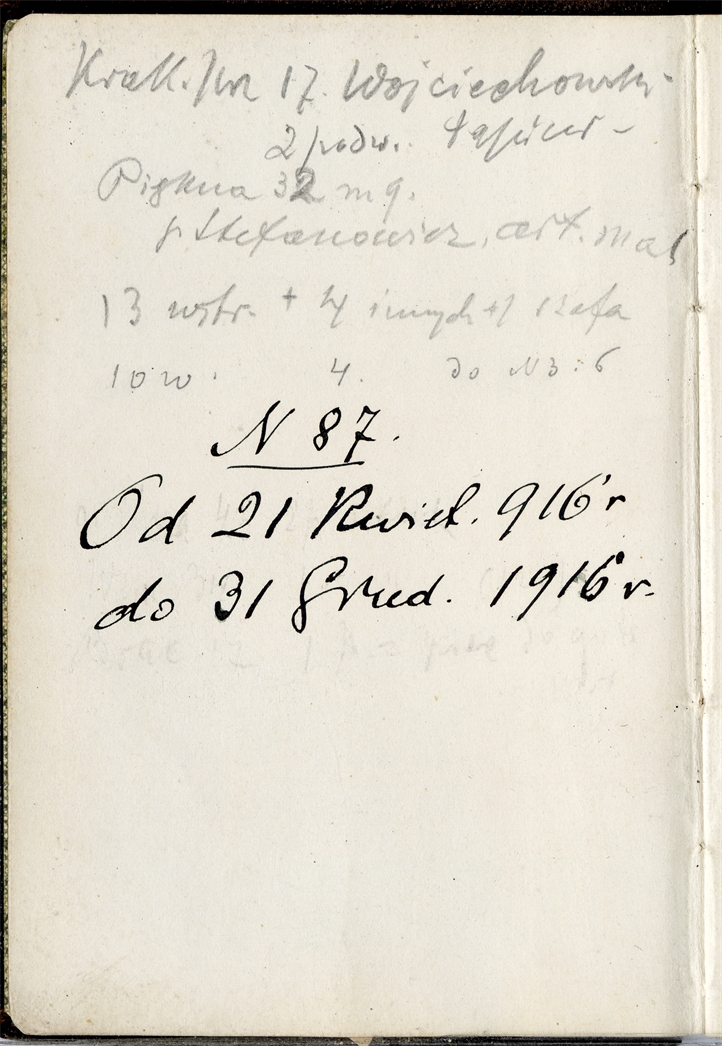 Krak. Prz 17. Wojciechowski
2 podw.
Piękna 32 m 9.
p Stefanowicz, art. mal
13 wstr. + 4 innych + 1 szafa
10 w. 4. do N3: 6
N 87.
Od 21 Kwiet. 916 r
do 31 Grud. 1916 r.